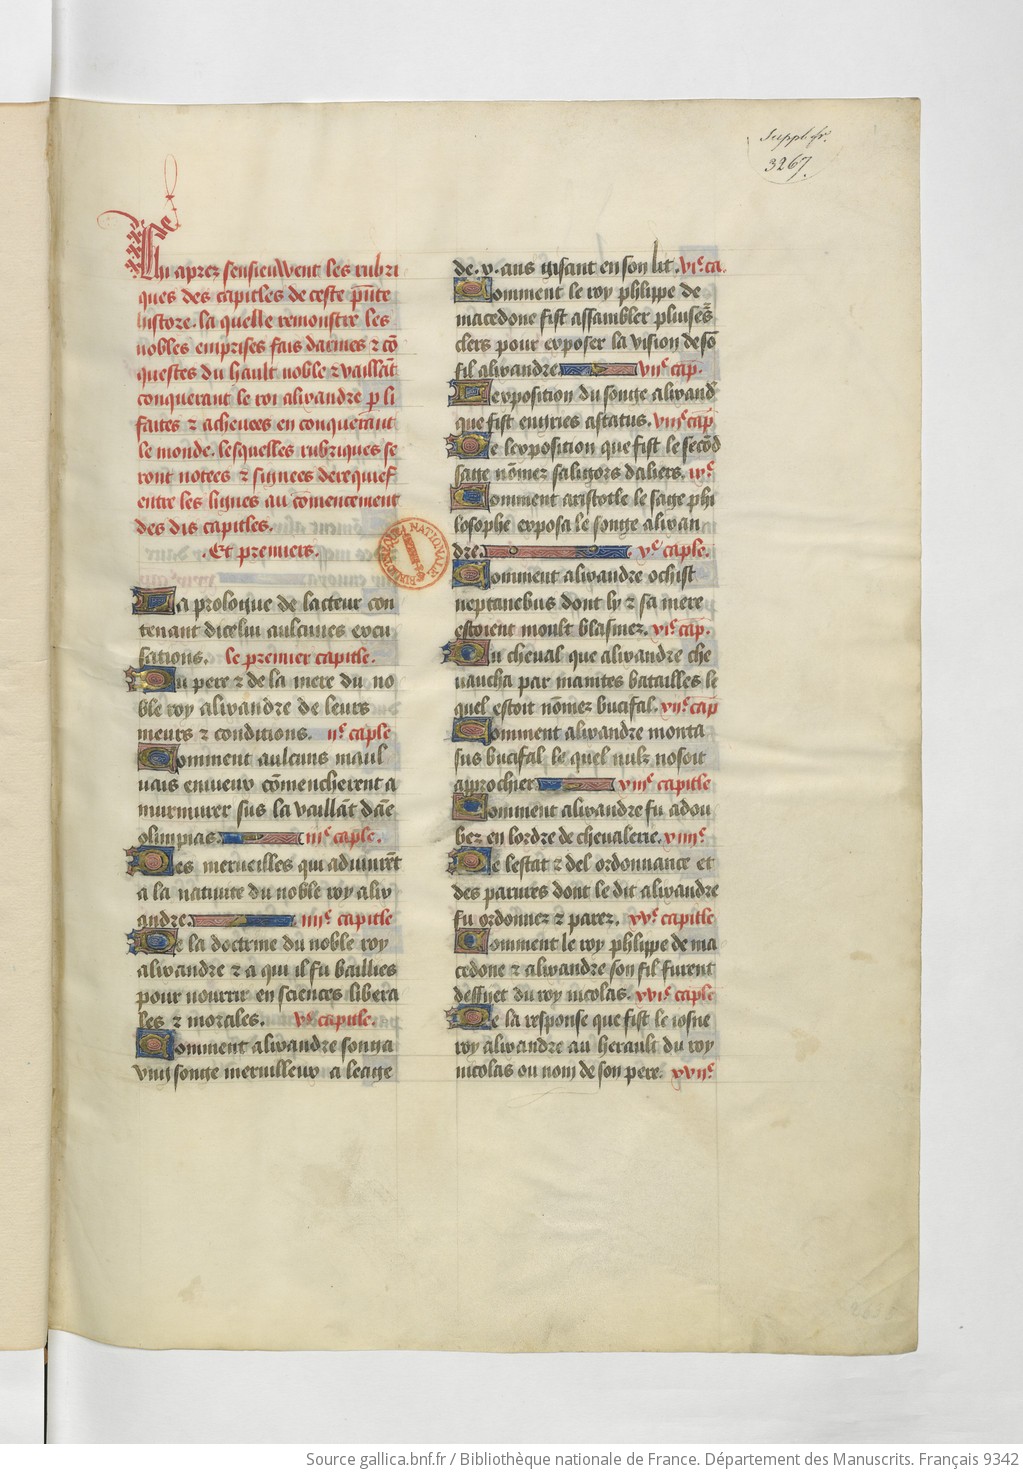 Suppl. fr.
3267.
Chi aprez sensieuwent les rubri
ques des capitles de ceste pñte
histore. la quelle remonstre les
nobles emprises fais darmes ⁊ cõ
questes du hault noble ⁊ vaillãt
conquerant le roi alixandre p̱ li
faites ⁊ acheuees en conquerant
le monde. lesquelles rubriques se
ront notees ⁊ signees de requief
entre les lignes au cõmencement
des dis capitles.
. Et premiers .
La prologue de lacteur con
tenant dicelui aulcunes excu
sations. le premier capitle.
Du pere ⁊ de la mere du no
ble roy alixandre de leurs
meurs ⁊ conditions. iiᵉ caple
Comment aulcuns maul
uais enuieux cõmencherent a
murmurer sus la vaillãt dãe
olimpias. iiiᵉ caple.
Des merueilles qui aduinrẽt
a la natiuite du noble roy alix
andre. iiiiᵉ capitle
De la doctrine du noble roy
alixandre ⁊ a qui il fu baillies
pour nourrir en sciences libera
les ⁊ morales. vᵉ capitle.
Comment alixandre songa
vng songe merueilleux a leage
de .v. ans gisant en son lit. viᵉ ca.
Comment le roy phlippe de
macedone fist assambler pluiseᷣs
clers pour exposer la vision de sõ
fil alixandre viiᵉ cap̃.
Lexposition du songe alixand̾
que fist eniries astatus. viiiᵉ cap̃
De lexposition que fist le secõd
sage nõmez saligors daliers. ixᵉ
Comment aristotle le sage phi
losophe exposa le songe alixan
dre. xᵉ caple.
Comment alixandre ochist
neptanebus dont ly ⁊ sa mere
estoient moult blasmez. xiᵉ cap̃.
Du cheual que alixandre che
uaucha par maintes batailles le
quel estoit nõmez bucifal. xiiᵉ cap̃
Comment alixandre monta
sus bucifal le quel nulz nosoit
aprochier. xiiiᵉ capitle
Comment alixandre fu adou
bez en lordre de cheualerie. xiiiiᵉ
De lestat ⁊ del ordonnance et
des parures dont le dit alixandre
fu ordonnez ⁊ parez. xvᵉ capitle
Comment le roy phlippe de ma
cedone ⁊ alixandre son fil furent
deffyet du roy nicolas. xviᵉ caple
De la response que fist le iosne
roy alixandre au herault du roy
nicolas ou nom de son pere. xviiᵉ
BIBLIOTHEQUE NATIONALE
Source gallica.bnf.fr / Bibliothèque nationale de France. Département des Manuscrits. Français 9342